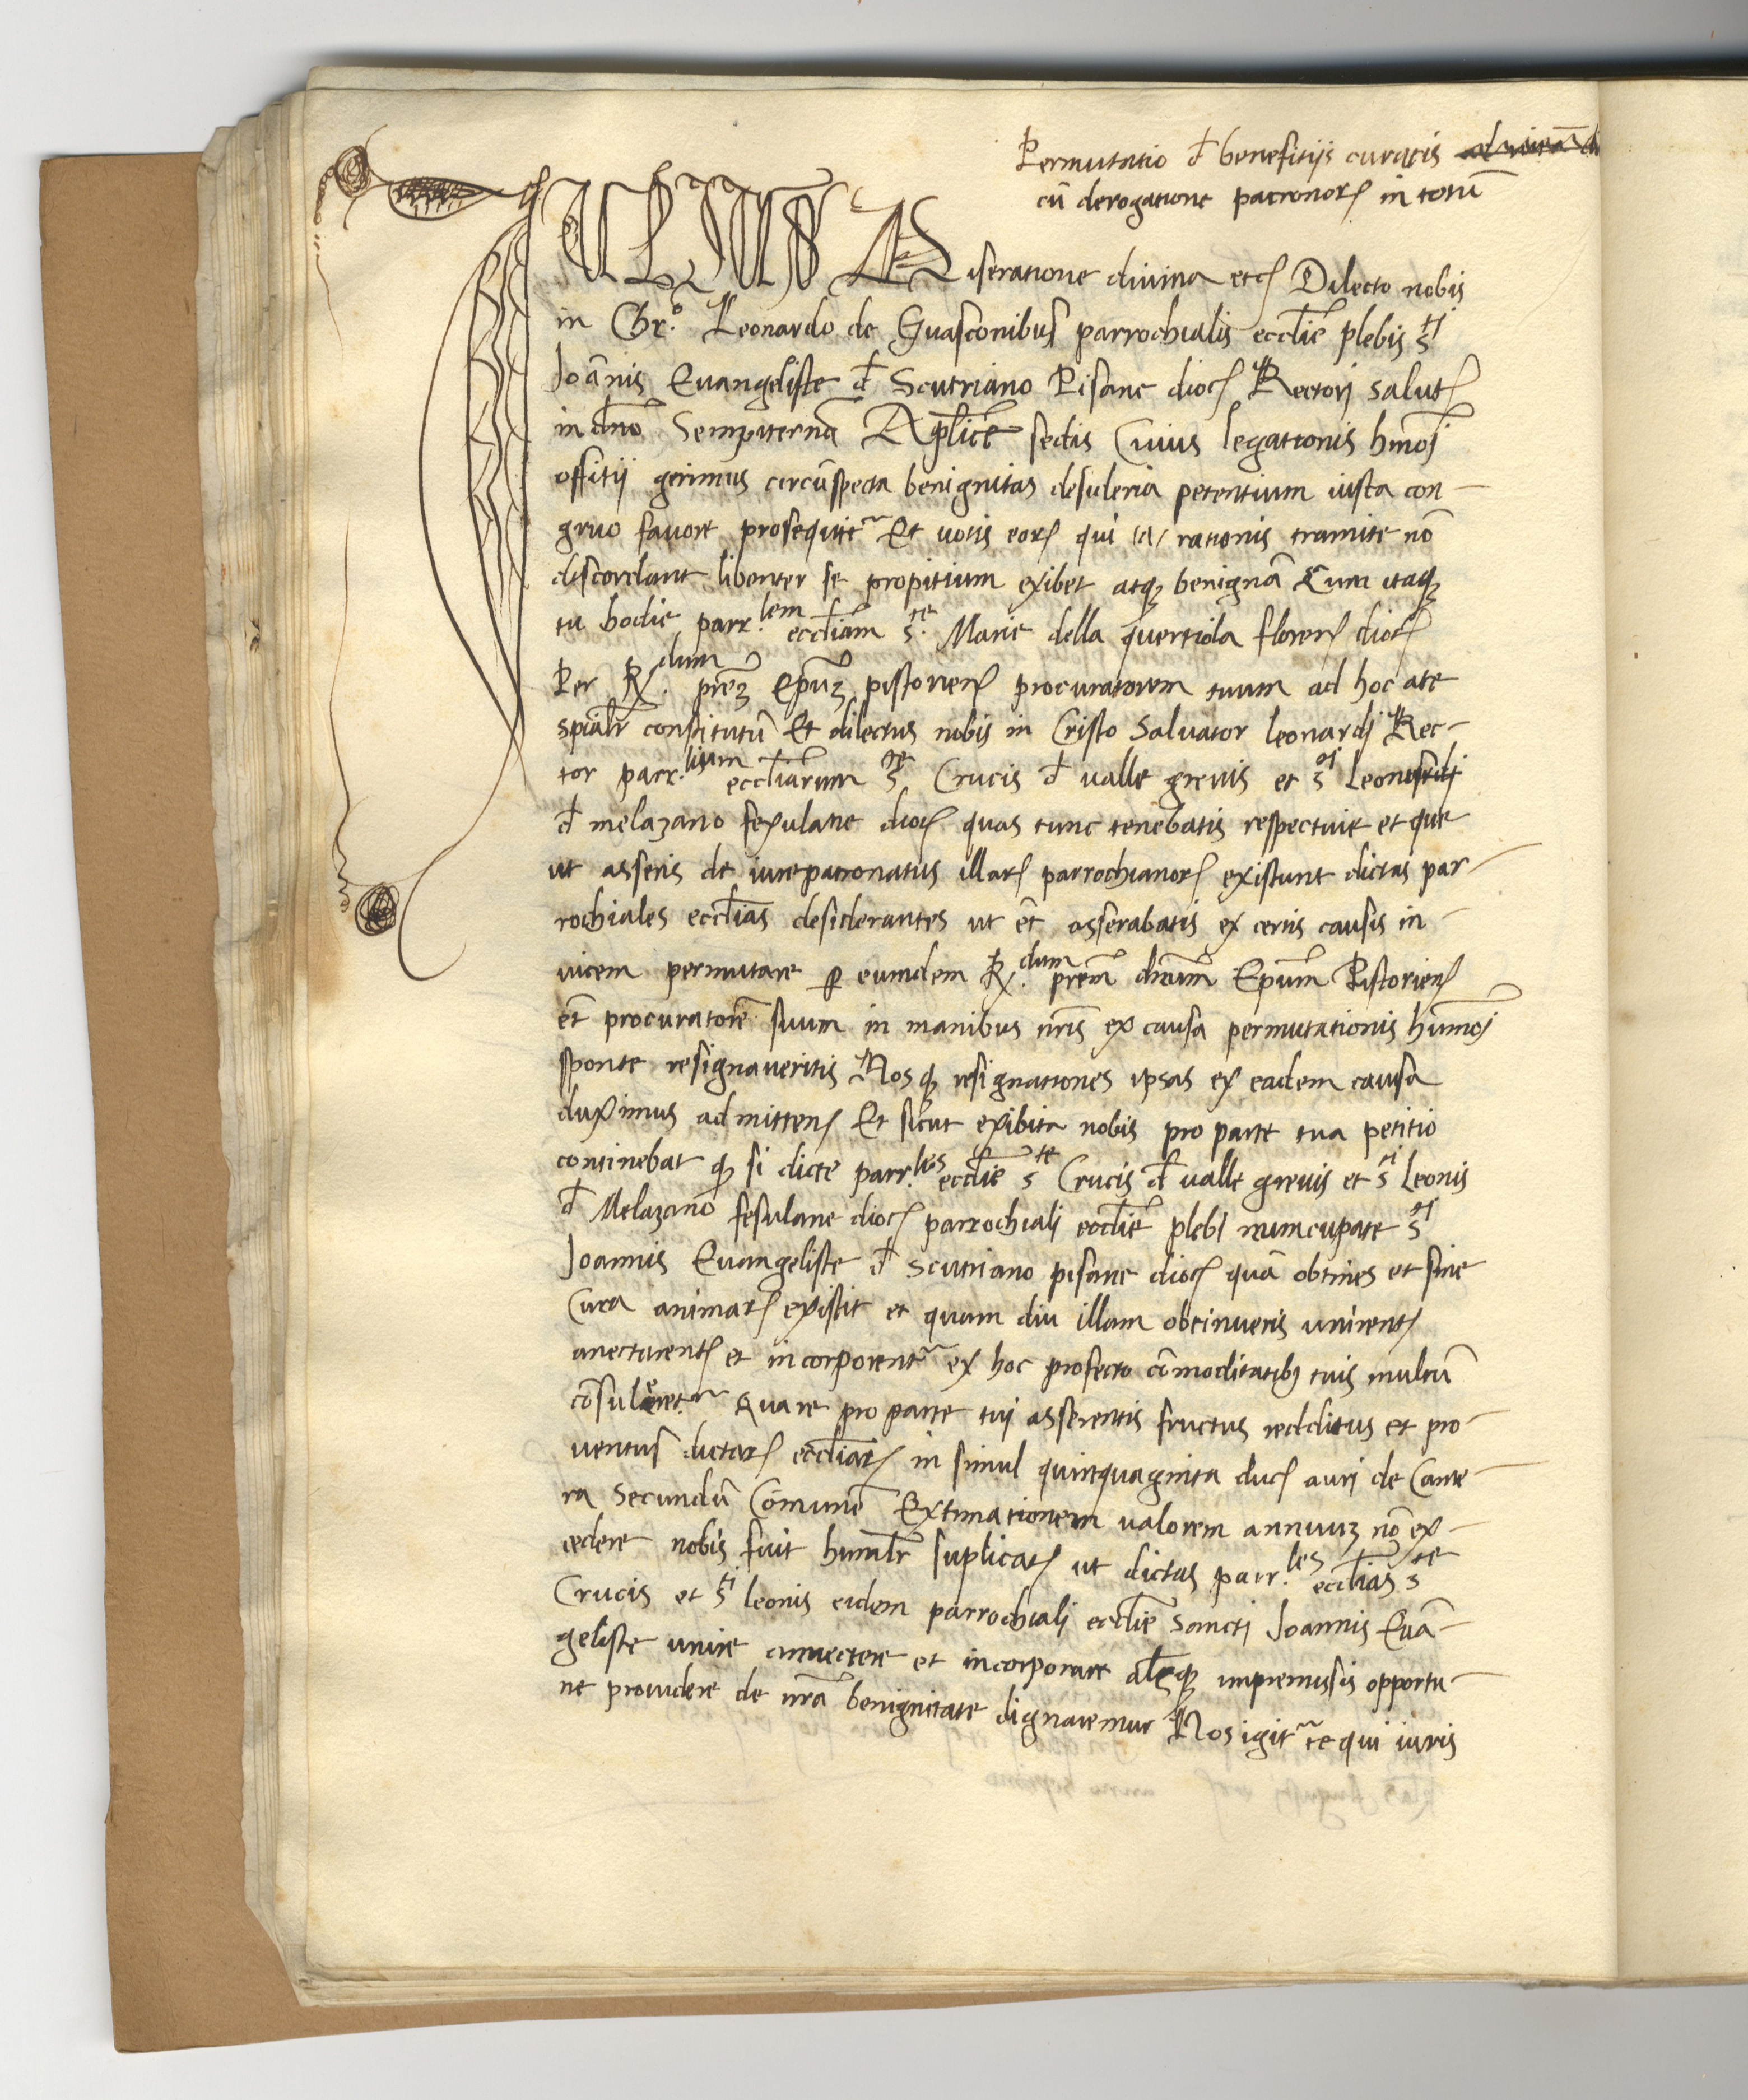 Permutatio d̄ benefitijs curatis
cū derogatione patronorꝝ in totū
IULIUS Miseratione divina etcꝭ Dilecto nobis
in Chr.º Leonardo de Guasconibus parrochialis ecclīe plebis sti
Joānnis Evangeliste d̄ Scutriano Pisane diocꝭ Rectorj salutꝭ
in dño Sempiternā Aplice sedis Cuius legationis hmōj
offitij gerimus circūspecta benignitas desideria petentium iusta con-
gruo favore prosequitr Et votis eorꝝ qui a rationis tramite nō
discordant libenter se propitium exibet atqꝫ benignā Cum itaqꝫ
tu hodie parr.lem eccliam s.te Marie della quertiola florenꝭ diocꝭ
Per R.dum prēꝫ Epūꝫ pistorienꝭ procuratorem tuum ad hoc a te
spialr̄ constitutū Et dilectus nobis in Cristo Salvator leonardj Rec-
tor parr.lium eccliarum ste Crucis d̄ valle grevis et sti
d̄ melazano fexulane diocꝭ quas tunc tenebatis respectiue et que
ut asseris de iurepatronatus illarꝝ parrochianorꝝ existunt dictas par-
rochiales ecclias desiderantes ut et̄ asserabatis ex certis causis in-
vicem permutare ꝑ eumdem R.dum prem̄ dnum̄ Epum̄ Pistorienꝭ
et̄ procuratore suum in manibus nr̄is ex causa permutationis hum̄oj
sponte resignaveritis Nosqꝫ resignationes ipsas ex eadem causa
duximus admittenꝭ Et sicut exibita nobis pro parte tua petitio
continebat qꝫ si dicte parr.les ecclīe ste Crucis d̄ valle grevis et sti Leonis
d̄ Melazano fesulane diocꝭ parrochiali ecclīe plebi nuncupate sti
Joannis Evangeliste d̄ Scutriano pisane diocꝭ quā obtines et sine
Cura animarꝝ existit et quam diu illam obtinueris unirentꝭ
anectarentꝭ et incorporentr ex hoc profecto cōmoditatibꝫ tuis multū
cōsuleretr Quare pro parte tuj asserentis fructus redditus et pro-
ventus dictarꝝ eccliarꝝ in simul quinquaginta ducꝭ aurj de Came-
ra Secundū Cōmune Extimationem valorem annuuꝫ nō ex-
cedere nobis fuit humilr̄ suplicatꝭ ut dictas parr.les ecclias ste
Crucis et sti leonis eidem parrochialj ecclīe Sanctj Joannis Evā-
geliste unire annectere et incorporare alsqꝫ inpremissis opportu-
ne providere de nrā benignitate dignaremur Nos igitr te qui iuris